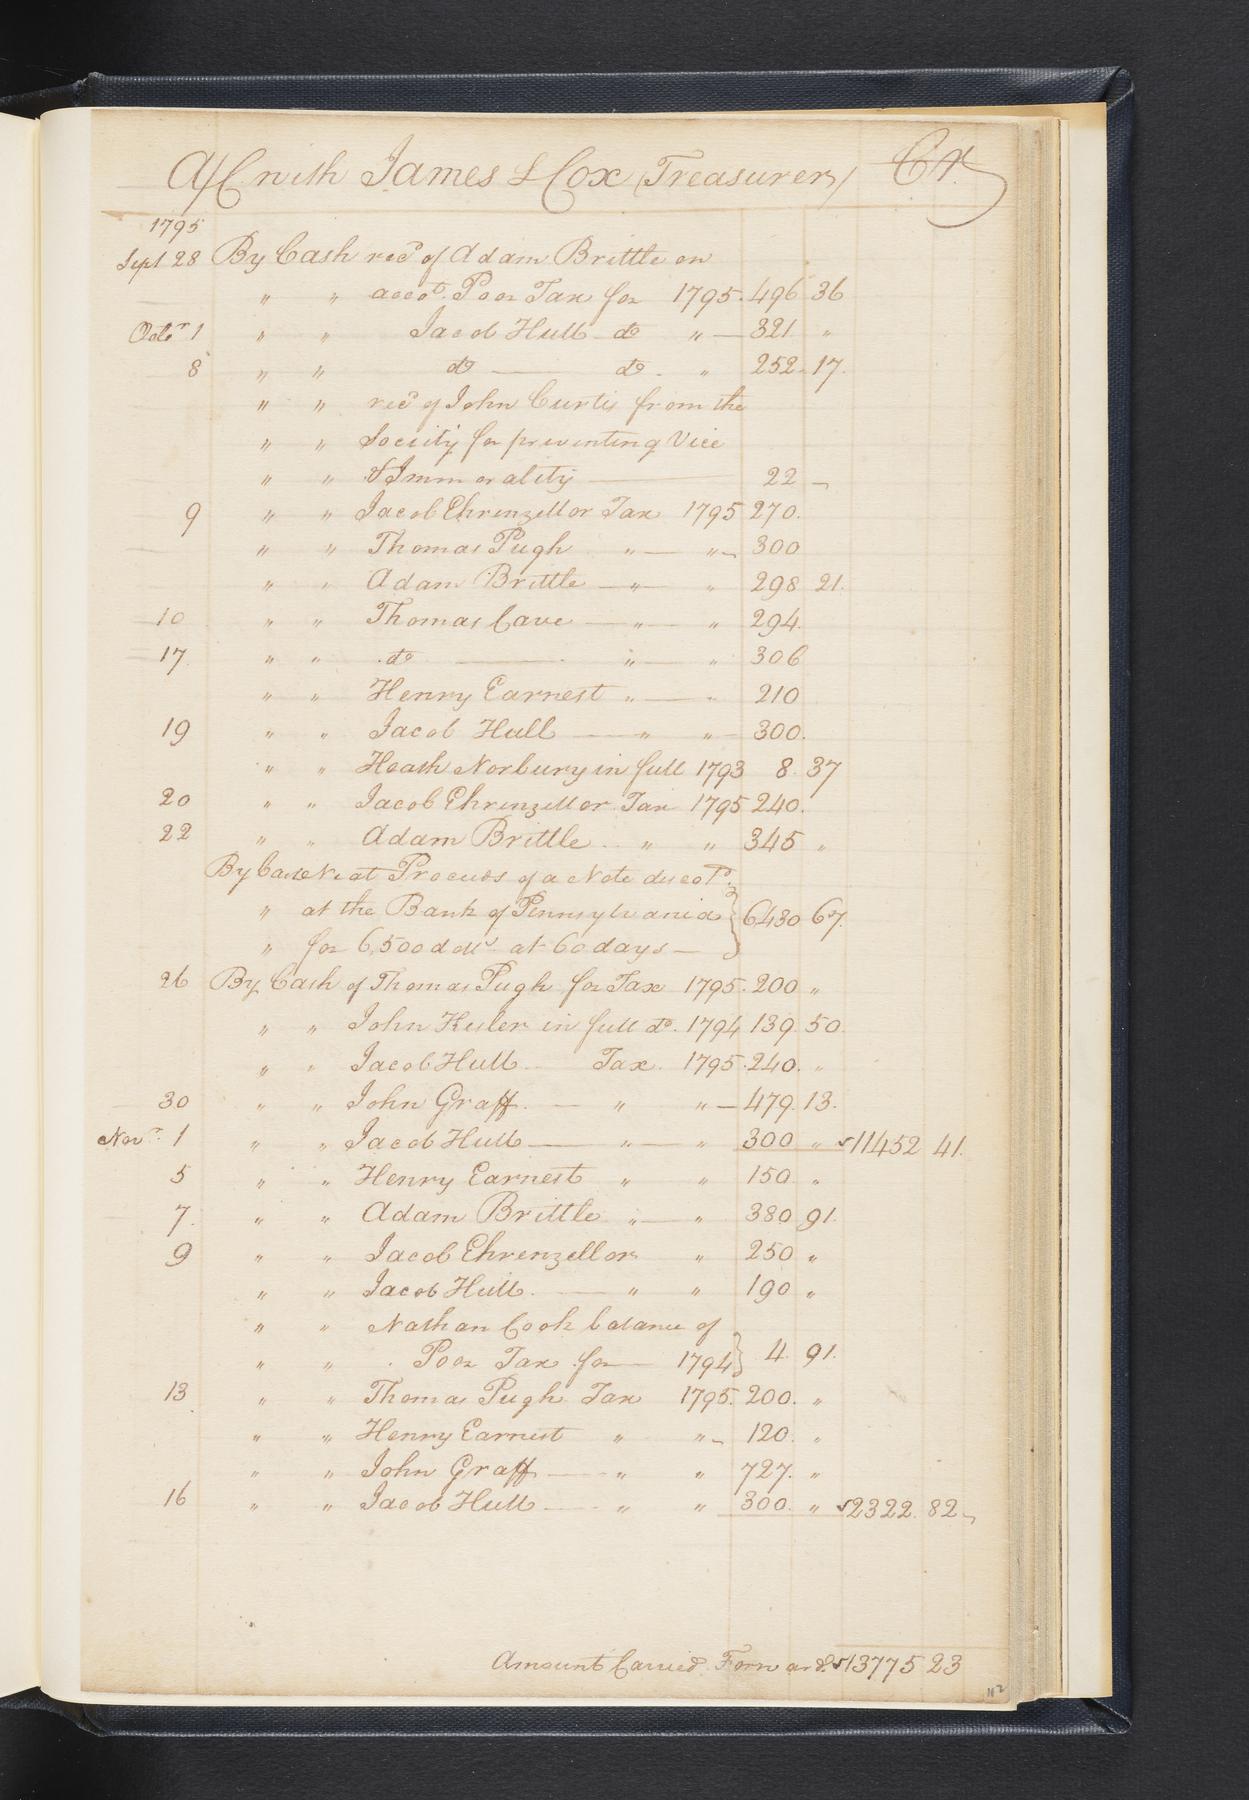 A/C with James S Cox (Treasurer) Cr.
1795
Sept 28 By Cash recd of Adam Brittle on
" " accot. Poor Tax for 1795. 496 36
Octor 1 " " Jacob Hull do " — 321 "
8 " " do — do. " 252. 17.
" " recd of John Curtis from the
" " Society for preventing Vice
" " & Immorality — 22 -
9 " " Jacob Ehrenzellor Tax 1795 270.
" " Thomas Pugh " — " 300
" " Adam Brittle — " — " 298 21.
10 " " Thomas Cave — " — " 294.
17. " " do — " — " 306
" " Henry Earnest " — " 210
19 " " Jacob Hull — " " — 300.
" " Heath Norbury in full 1793 8. 37
20 " " Jacob Ehrenzellor Tax 1795 240.
22 " " Adam Brittle " " 345 "
By Cash Neat Proceeds of a Note discotd.
" at the Bank of Pennsylvania } 6430 67.
" for 6,500 dolls at 60 days —
26 By Cash of Thomas Pugh for Tax 1795. 200 "
" " John Keeler in full do. 1794 139. 50.
" " Jacob Hull Tax 1795. 240. "
30 " " John Graff. — " " — 479. 13.
Novr. 1 " " Jacob Hull — " — " 300 " $11452 41.
5 " " Henry Earnest " " 150 "
7. " " Adam Brittle " — " 380 91.
9 " " Jacob Ehrenzellor " 250 "
" " Jacob Hull. — " " 190 "
" " Nathan Cook balance of
" " Poor Tax for — 1794 } 4. 91.
13 " " Thomas Pugh Tax 1795. 200. "
" " Henry Earnest " " 120. "
" " John Graff — " " 727. "
16 " " Jacob Hull — " " 300. " $2322. 82
Amount Carried Forward. $13775 23
112